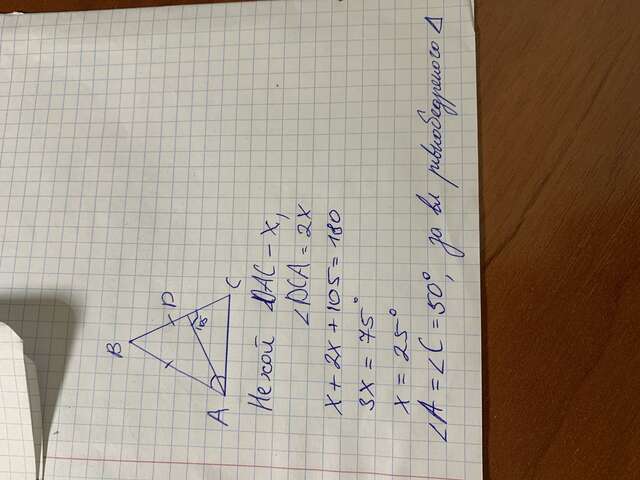 B
D
105
A
C
Нехай ∠DAC – x,
∠DCA = 2x
x + 2x + 105 = 180
3x = 75°
x = 25°
∠A = ∠C = 50°, за вл рівнобедреного Δ